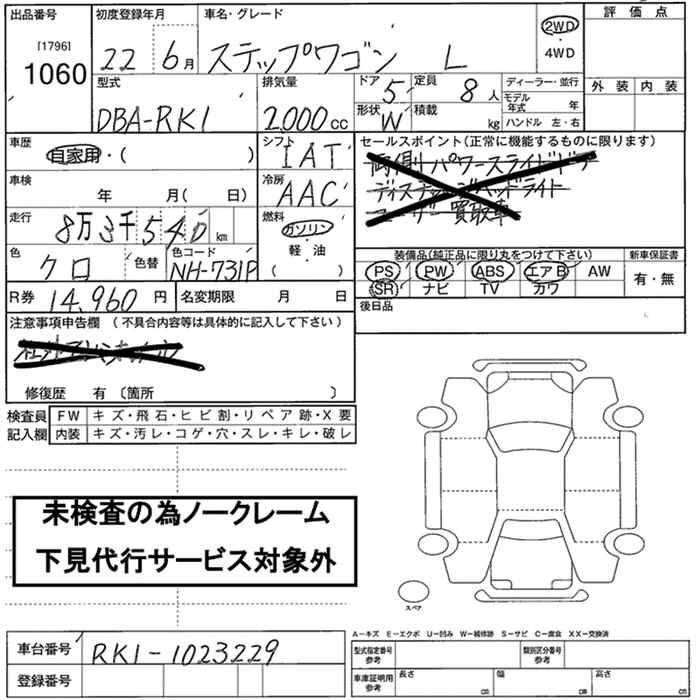 出品番号 初度登録年月 車名・グレード 評価点
[1796]
1060 22 6月 ステップワゴン L 2WD・4WD
外装 内装
型式 排気量 ドア 5 定員 8人 ディーラー・並行
DBA-RK1 2000cc 形状 W 積載 kg モデル年式 年
ハンドル 左・右
車歴 シフト セールスポイント(正常に機能するものに限ります)
自家用・( ) IAT 両側パワースライドドア
車検 冷房 ディスチャージヘッドライト
年 月( 日) AAC ユーザー買取車
走行 燃料
8万3千540km ガソリン・軽・油( )
色 色替 色コード 装備品(純正品に限り丸をつけて下さい) 新車保証書
クロ NH-731P PS PW ABS エアB AW 有・無
SR ナビ TV カワ
R券 14,960円 名変期限 月 日 後日品
注意事項申告欄 (不具合内容等は具体的に記入して下さい)
修復歴 有 〔箇所 〕
検査員 FW キズ・飛石・ヒビ割・リペア跡・X要
記入欄 内装 キズ・汚レ・コゲ・穴・スレ・キレ・破レ
未検査の為ノークレーム
下見代行サービス対象外
スペア
A－キズ E－エクボ U－凹み W－補修跡 S－サビ C－腐食 XX－交換済
車台番号 RK1-1023229 型式指定番号 参考 類別区分番号 参考
登録番号 車庫証明用 参考 長さ cm 幅 cm 高さ cm